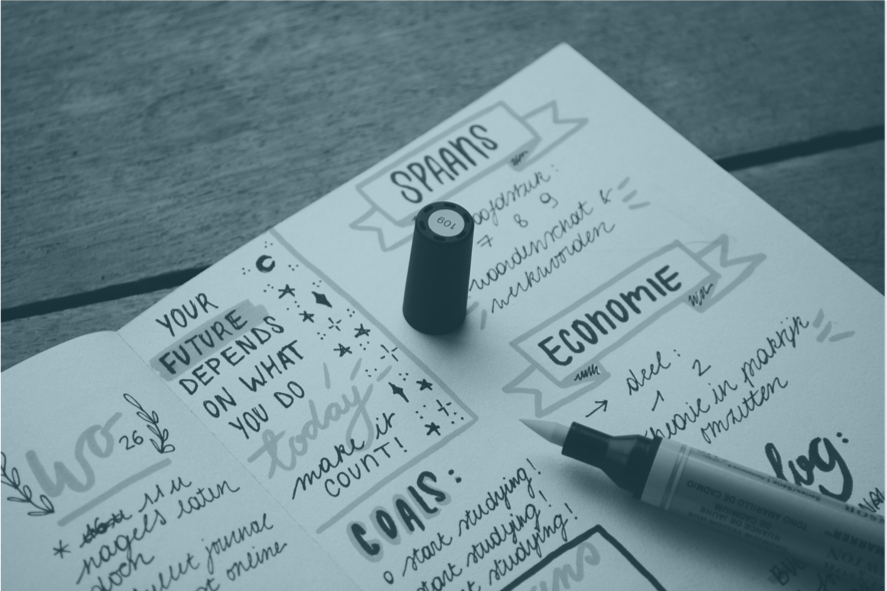 WO
26
11 u
* nagels laten
doch
bullet journal
online
YOUR
FUTURE
DEPENDS
ON WHAT
YOU DO
today
make it
COUNT!
GOALS:
o start studying!
start studying!
start studying!
SPAANS
hoofdstuk:
7 8 9
woordenschat &
werkwoorden
ECONOMIE
→ deel:
1 2
theorie in praktijk
omzetten
109